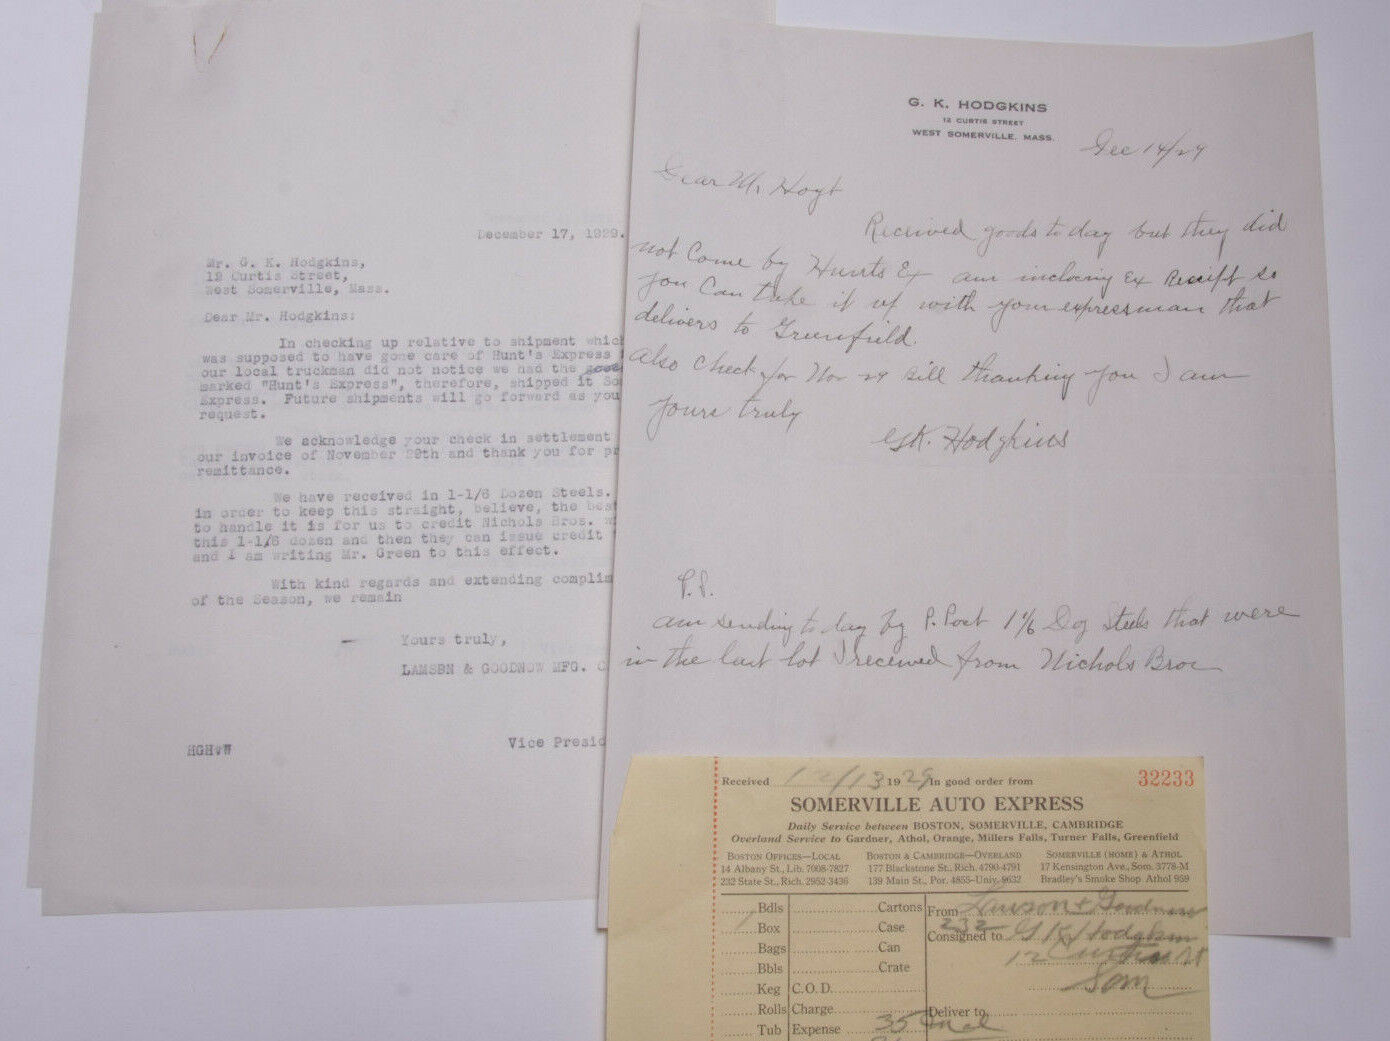 December 17, 1929.
Mr. G. K. Hodgkins,
12 Curtis Street,
West Somerville, Mass.
Dear Mr. Hodgkins:
In checking up relative to shipment whic
was supposed to have gone care of Hunt's Express
our local truckman did not notice we had the
marked "Hunt's Express", therefore, shipped it So
Express. Future shipments will go forward as you
request.
We acknowledge your check in settlement
our invoice of November 29th and thank you for pr
remittance.
We have received in 1-1/6 Dozen Steels.
in order to keep this straight, believe, the best
to handle it is for us to credit Nichols Bros. w
this 1-1/6 dozen and then they can issue credit
and I am writing Mr. Green to this effect.
With kind regards and extending complim
of the Season, we remain
Yours truly,
LAMSON & GOODNOW MFG. C
Vice Presid
HGH:W
G. K. HODGKINS
12 CURTIS STREET
WEST SOMERVILLE, MASS.
Dec 14/29
Dear Mr Hoyt
Received goods to day but they did
not Come by Hunts Ex am inclosing Ex Receipt so
you Can take it up with your expressman that
delivers to Greenfield.
Also Check for Nov 29 Bill thanking you I am
yours truly
GK. Hodgkins
P.S.
am sending to day by P. Post 1 1/6 Doz Steels that were
in the last lot I received from Nichols Bros
Received 12/13 1929 In good order from 32233
SOMERVILLE AUTO EXPRESS
Daily Service between BOSTON, SOMERVILLE, CAMBRIDGE
Overland Service to Gardner, Athol, Orange, Millers Falls, Turner Falls, Greenfield
BOSTON OFFICES—LOCAL BOSTON & CAMBRIDGE—OVERLAND SOMERVILLE (HOME) & ATHOL
14 Albany St., Lib. 7908-7827 177 Blackstone St., Rich. 4790-4791 17 Kensington Ave., Som. 3778-M
232 State St., Rich. 2952-3436 139 Main St., Por. 4855-Univ. 9632 Bradley's Smoke Shop Athol 959
Bdls Cartons From Lamson + Goodnow
1 Box Case 232
Consigned to G K Hodgkins
Bags Can 12 Curtis St
Bbls Crate Som
Keg C.O.D.
Rolls Charge Deliver to
Tub Expense 35